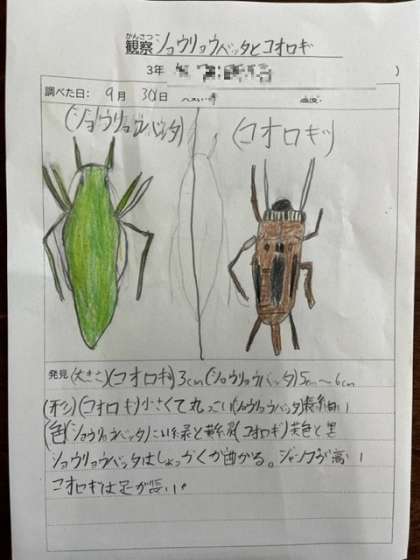 観察 ショウリョウバッタとコオロギ
かんさつ
3年
)
調べた日: 9月 30日
(ショウリョウバッタ)
(コオロギ)
発見 (大きさ)(コオロギ)3cm(ショウリョウバッタ)5cm～6cm
(形)(コオロギ)小さくて丸っこい(ショウリョウバッタ)細い
(色)(ショウリョウバッタ)こい緑と黄緑(コオロギ)茶色と黒
ショウリョウバッタはしょっかくが曲がる。ジャンプが高い
コオロギは足が長い。